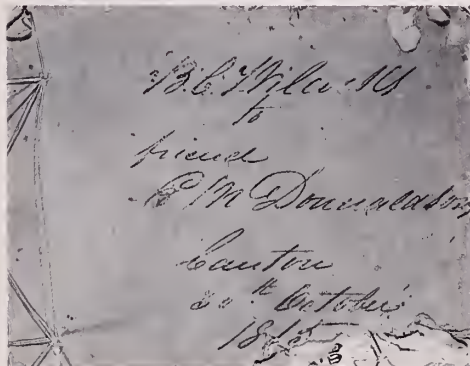 B.C. Wilcocks
to
friend
R M Donnaldson
Canton
30th October
18
昌